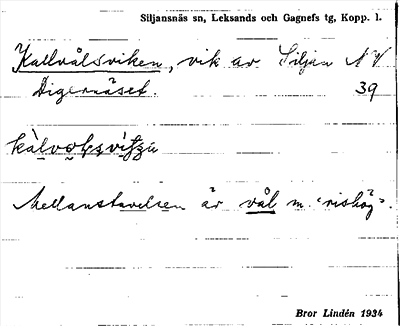 Siljansnäs sn, Leksands och Gagnefs tg, Kopp. l.
Kallvålsviken, vik av Siljan NV
Digernäset. 39
Mellanstavelsen är vål m. "rishög".
Bror Lindén 1934